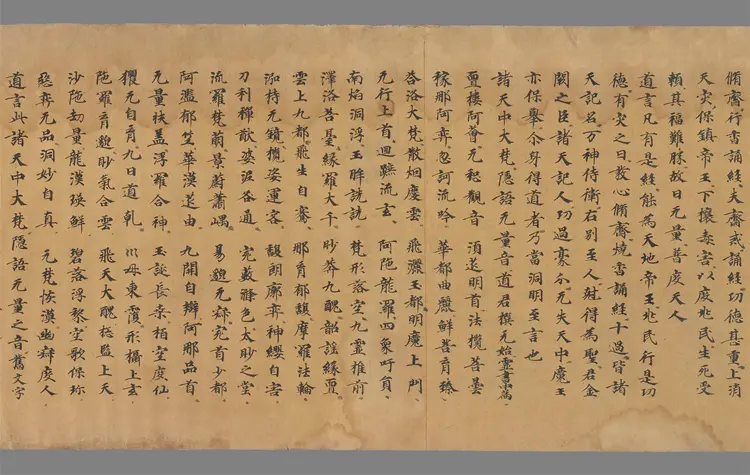 脩齋行香誦經夫齋戒誦經功德甚重上消
天灾保鎮帝王下禳毒害以度兆民生死受
賴其福難勝故曰无量普度天人
道言凡有是經能為天地帝王兆民行是功
德有灾之日發心脩齋燒香誦經十過皆諸
天記名万神侍衛右別至人剋得為聖君金
闕之臣諸天記人功過豪分无失天中魔王
亦保舉尒身得道者乃當洞明至言也
諸天中大梵隱語无量音道君撰元始靈書萬
亶樓阿薈 无惒觀音 須延明首 法攬菩曇
稼那阿弈 忽訶流吟 華都曲麗 鮮菩育臻
荅洛大梵 散烟慶雲 飛灑玉都 明魔上門
无行上首 迴蹠流玄 阿陁龍羅 四象吁員
南焰洞浮 玉眸詵詵 梵形落空 九靈推前
澤洛菩臺 緣羅大千 眇莽九醜 韶謠緣亶
雲上九都 飛生自騫 那育郁馥 摩羅法輪
泇持无鏡 攬姿運容 馥朗廓弈 神纓自宮
刀利禪猷 婆泥咎通 宛藪滌色 太眇之堂
流羅梵萠 景蔚蕭嵎 易邈无寂 宛首少都
阿濫郁竺 華漠延由 九開自辯 阿那品首
无量扶蓋 浮羅合神 玉誕長桑 栢空度仙
玃无自育 九日道乹 巛母東覆 形攝上玄
陁羅育邈 眇氣合雲 飛天大醜 捴監上天
沙陁劫量 龍漢瑛鮮 碧落浮黎 空歌保珎
惡弈无品 洞妙自真 元梵恢漠 幽寂度人
道言此諸天中大梵隱語无量之音舊文字